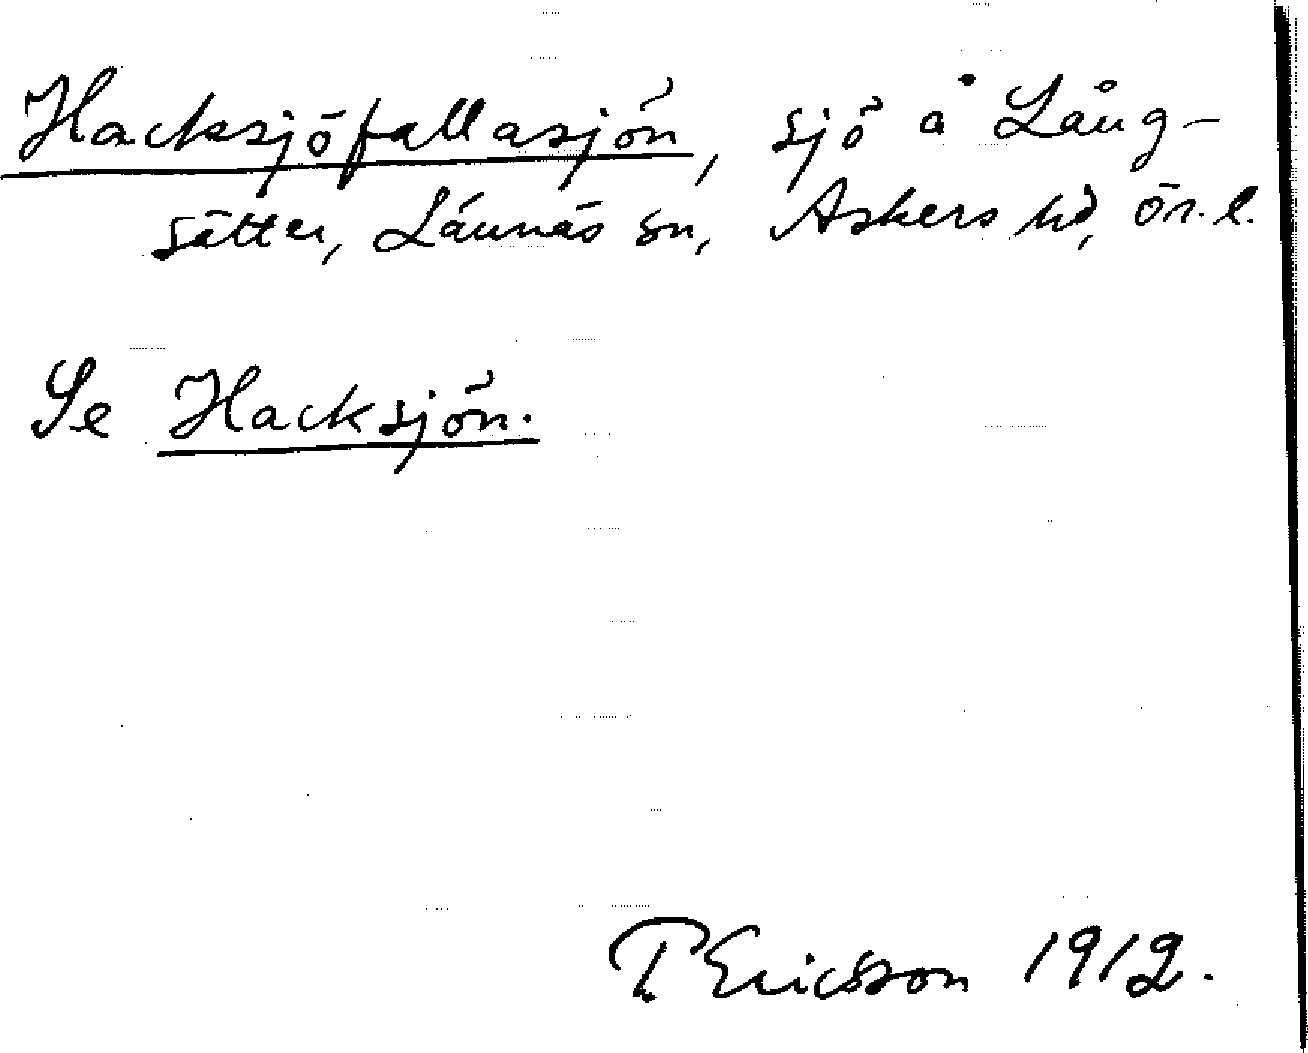 Hacksjöfallasjön, sjö å Lång-
sätter, Lännäs sn, Askers hd, Ör. l.
Se Hacksjön.
T Ericsson 1912.